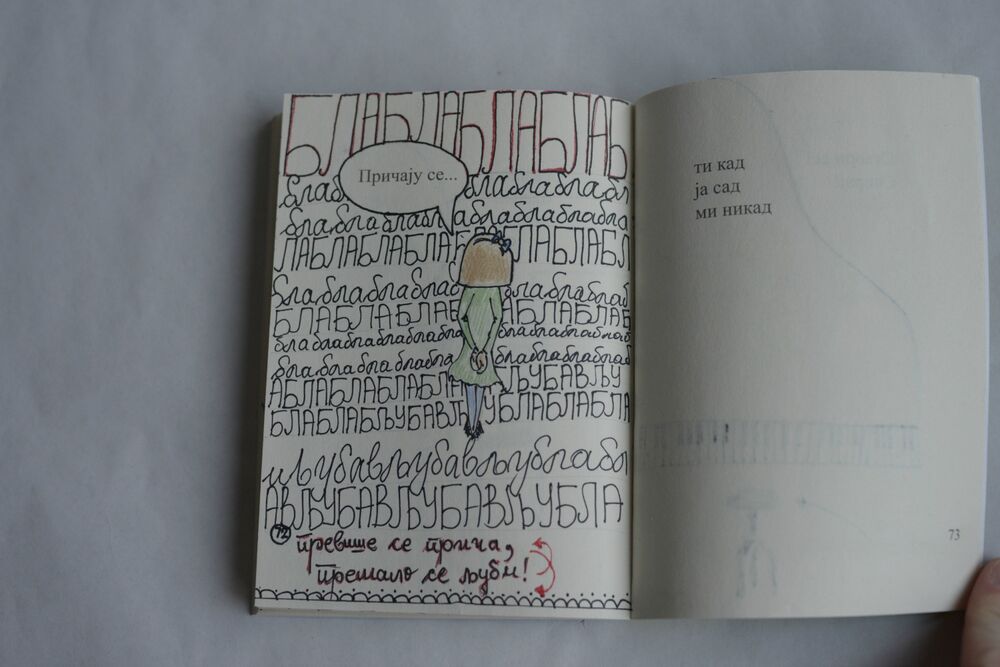 БЛАБЛАБЛАБЛАБ
Причају се...
блаблаблаблабл
блаблаблаблаблаблаба
ЛАБЛАБЛАБЛАБЛАБЛАБЛ
блаблаблаблаблаблаб
БЛАБЛАБЛАБЛАБЛАБ
блаблаблаблаблаблаблабла
блаблаблаблаблаблаблаб
АБЛАБЛАБЛАБЉУБАВЉУ
БЛАБЛАБЉУБАВЉУБЛАБЛАБЛА
иљубављубављублабл
АВЉУБАВЉУБАВЉУБЛА
72
превише се прича,
премало се љуби!
ти кад
ја сад
ми никад
73